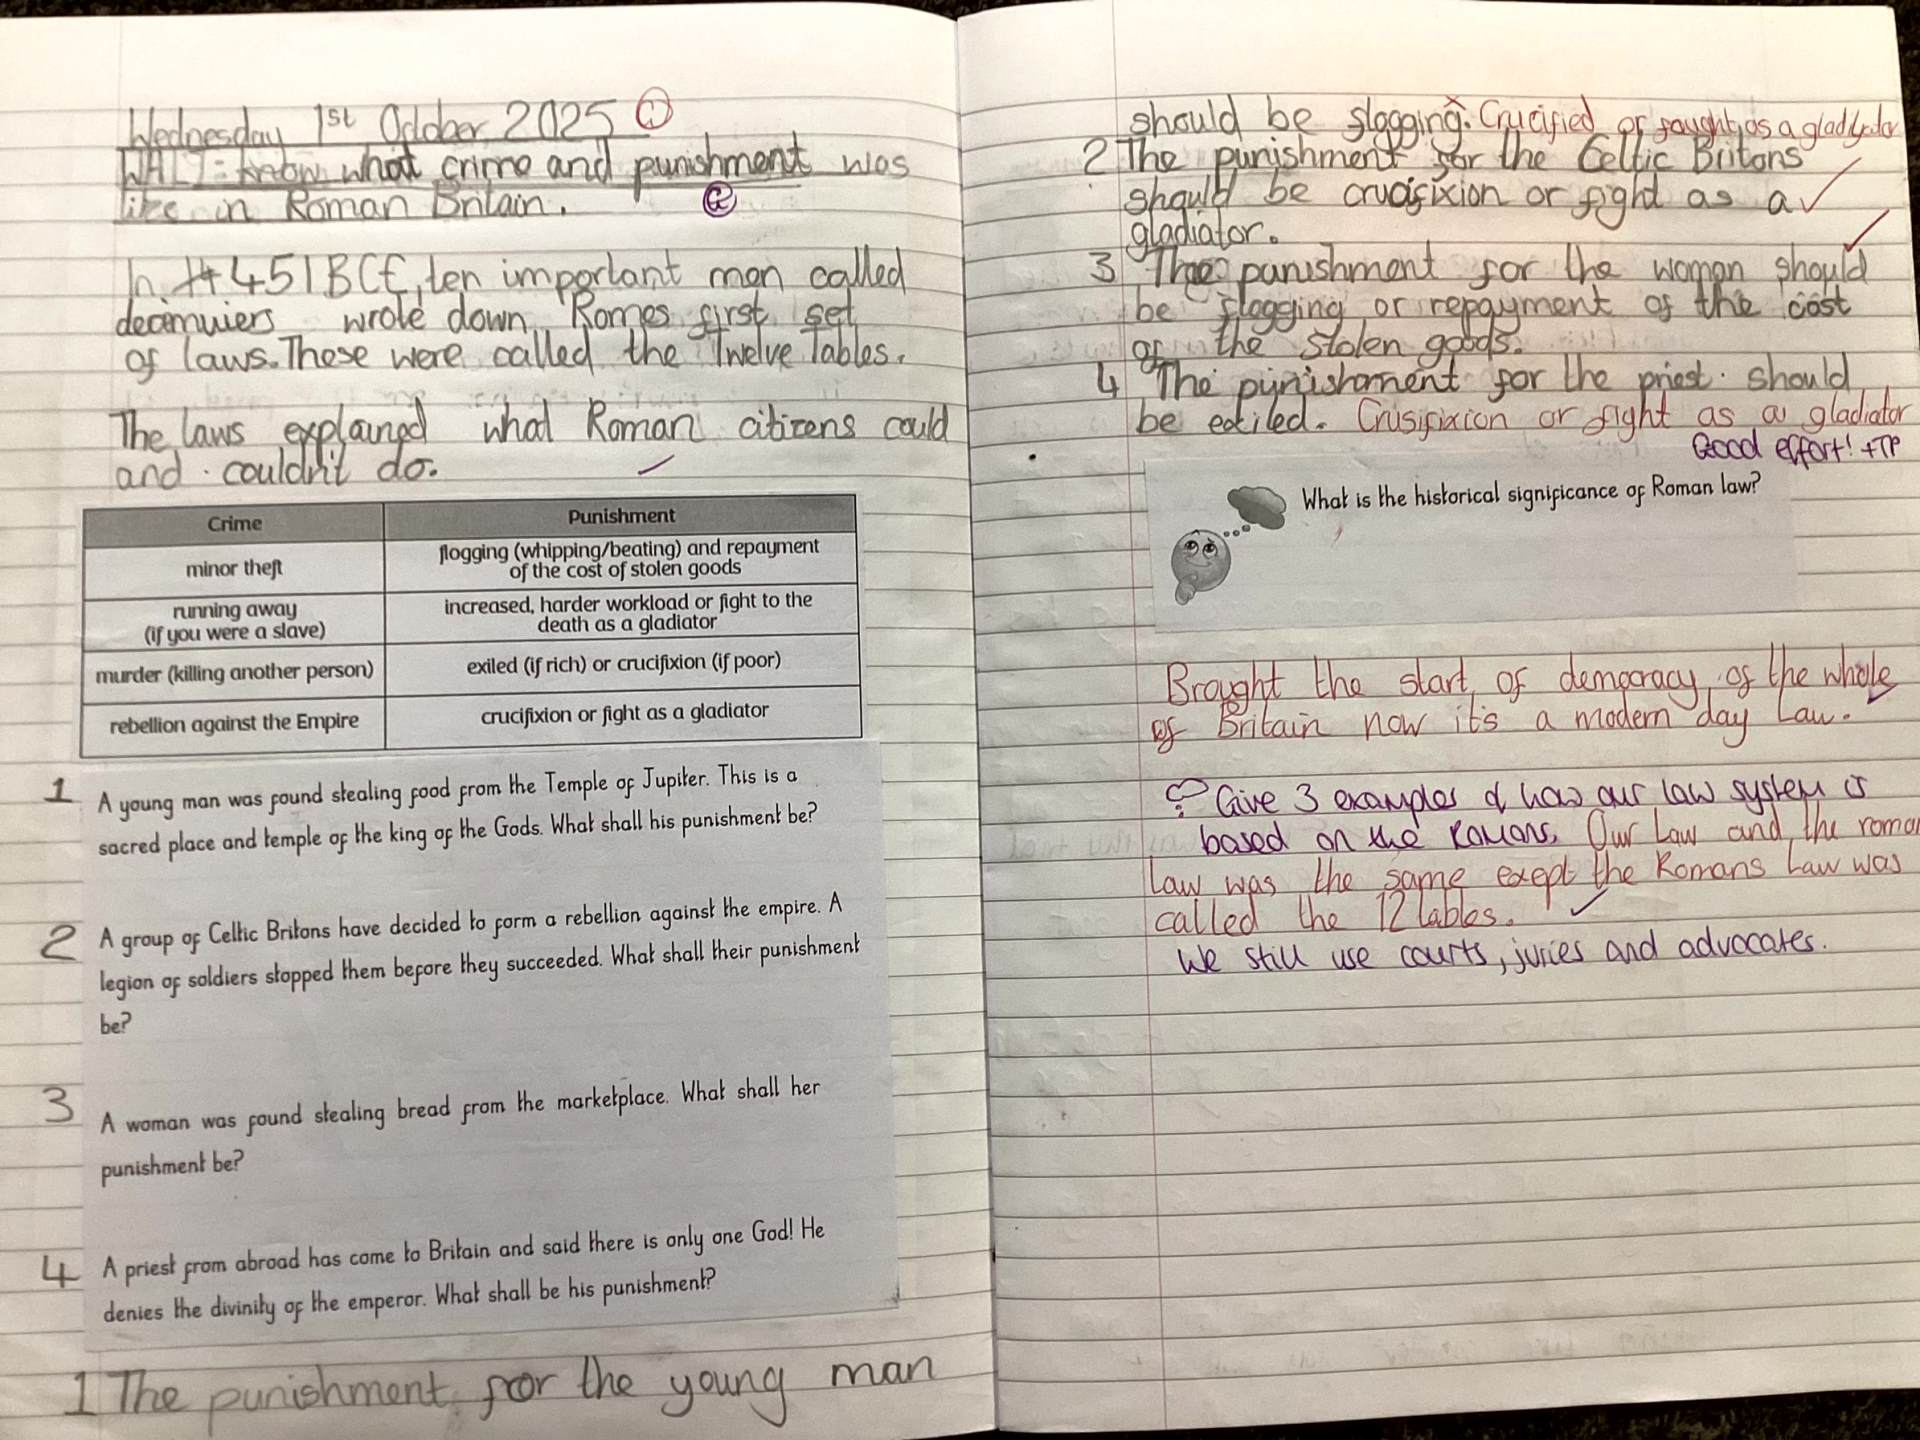 Wednesday 1st October 2025
WALT: know what crime and punishment was
like in Roman Britain.
In 451 BCE, ten important men called
decemuiers wrote down Romes first set
of laws. These were called the Twelve Tables.
The laws explained what Roman citizens could
and couldn't do.
Crime Punishment
minor theft flogging (whipping/beating) and repayment
of the cost of stolen goods
running away increased, harder workload or fight to the
(if you were a slave) death as a gladiator
murder (killing another person) exiled (if rich) or crucifixion (if poor)
rebellion against the Empire crucifixion or fight as a gladiator
1 A young man was found stealing food from the Temple of Jupiter. This is a
sacred place and temple of the king of the Gods. What shall his punishment be?
2 A group of Celtic Britons have decided to form a rebellion against the empire. A
legion of soldiers stopped them before they succeeded. What shall their punishment
be?
3 A woman was found stealing bread from the marketplace. What shall her
punishment be?
4 A priest from abroad has come to Britain and said there is only one God! He
denies the divinity of the emperor. What shall be his punishment?
1 The punishment for the young man
should be flogging. Crucified or fought as a
2 The punishment for the Celtic Britons
should be crucifixion or fight as a
gladiator.
3 The punishment for the woman should
be flogging or repayment of the cost
of the stolen goods.
4 The punishment for the priest should
be exiled. Crusifixion or fight as a gladiator
Good effort! +TP
What is the historical significance of Roman law?
Brought the start of democracy of the whole
of Britain now it's a modern day Law.
Give 3 examples of how our law system is
based on the Romans. Our Law and the roman
Law was the same exept the Romans Law was
called the 12 tables.
We still use courts, juries and advocates.